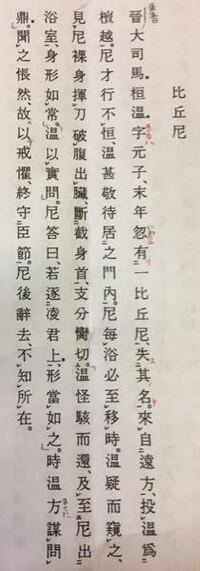 比丘尼
晉大司馬桓溫字元子、末年忽有一比丘尼、失其名。來自遠方、投溫爲
檀越。尼才行不恒、溫甚敬待、居之門內。尼每浴必至移時。溫疑而窺之、
見尼裸身揮刀、破腹出臟、斷截身首、支分臠切。溫怪駭而還、及至尼出
浴室、身形如常。溫以實問。尼答曰、若逐凌君上、形當如之。時溫方謀問
鼎。聞之悵然、故以戒懼、終守臣節。尼後辭去、不知所在。